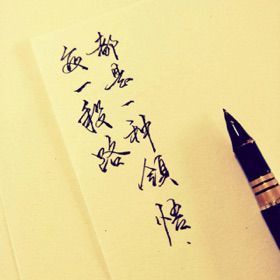 每一段路
都是一种領悟.